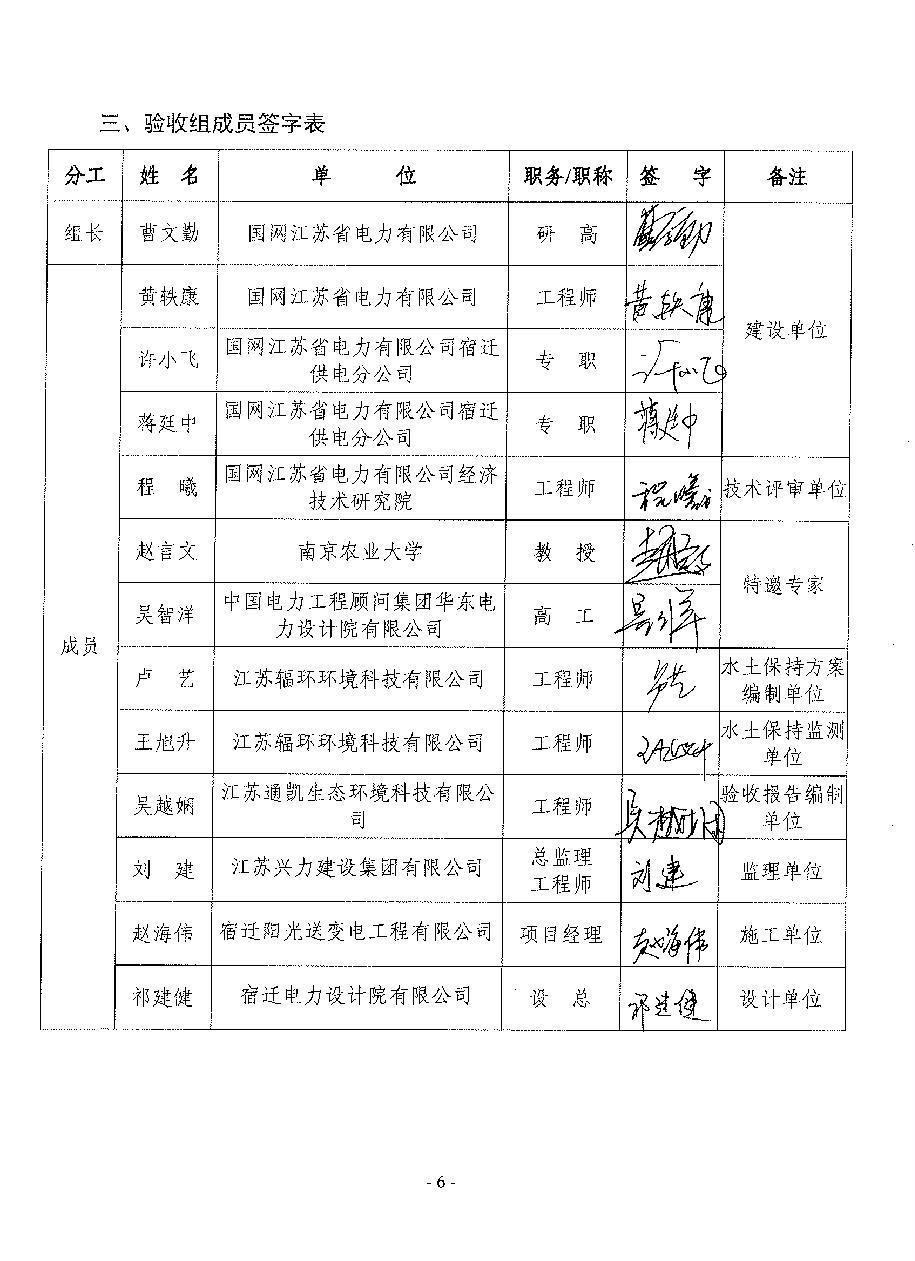 三、验收组成员签字表
分工 姓 名 单 位 职务/职称 签 字 备注
组长 曹文勤 国网江苏省电力有限公司 研 高
黄轶康 国网江苏省电力有限公司 工程师 黄轶康
建设单位
许小飞 国网江苏省电力有限公司宿迁
供电分公司
专 职
蒋廷中 国网江苏省电力有限公司宿迁
供电分公司
专 职 蒋廷中
程 曦 国网江苏省电力有限公司经济
技术研究院
工程师 程曦 技术评审单位
赵言文 南京农业大学 教 授
特邀专家
吴智洋 中国电力工程顾问集团华东电
力设计院有限公司
高 工
成员
卢 艺 江苏辐环环境科技有限公司 工程师 水土保持方案
编制单位
王旭升 江苏辐环环境科技有限公司 工程师 水土保持监测
单位
吴越娴 江苏通凯生态环境科技有限公
司
工程师 吴越娴 验收报告编制
单位
刘 建 江苏兴力建设集团有限公司 总监理
工程师
刘建 监理单位
赵海伟 宿迁阳光送变电工程有限公司 项目经理 赵海伟 施工单位
祁建健 宿迁电力设计院有限公司 设 总 祁建健 设计单位
- 6 -